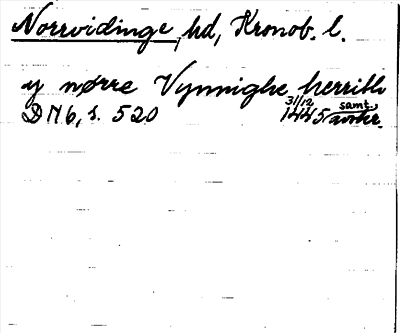 Norrvidinge, hd, Kronob. l.
y nørre Vynnighe herrith
31/12 samt.
DN6, s. 520 1445 avskr.